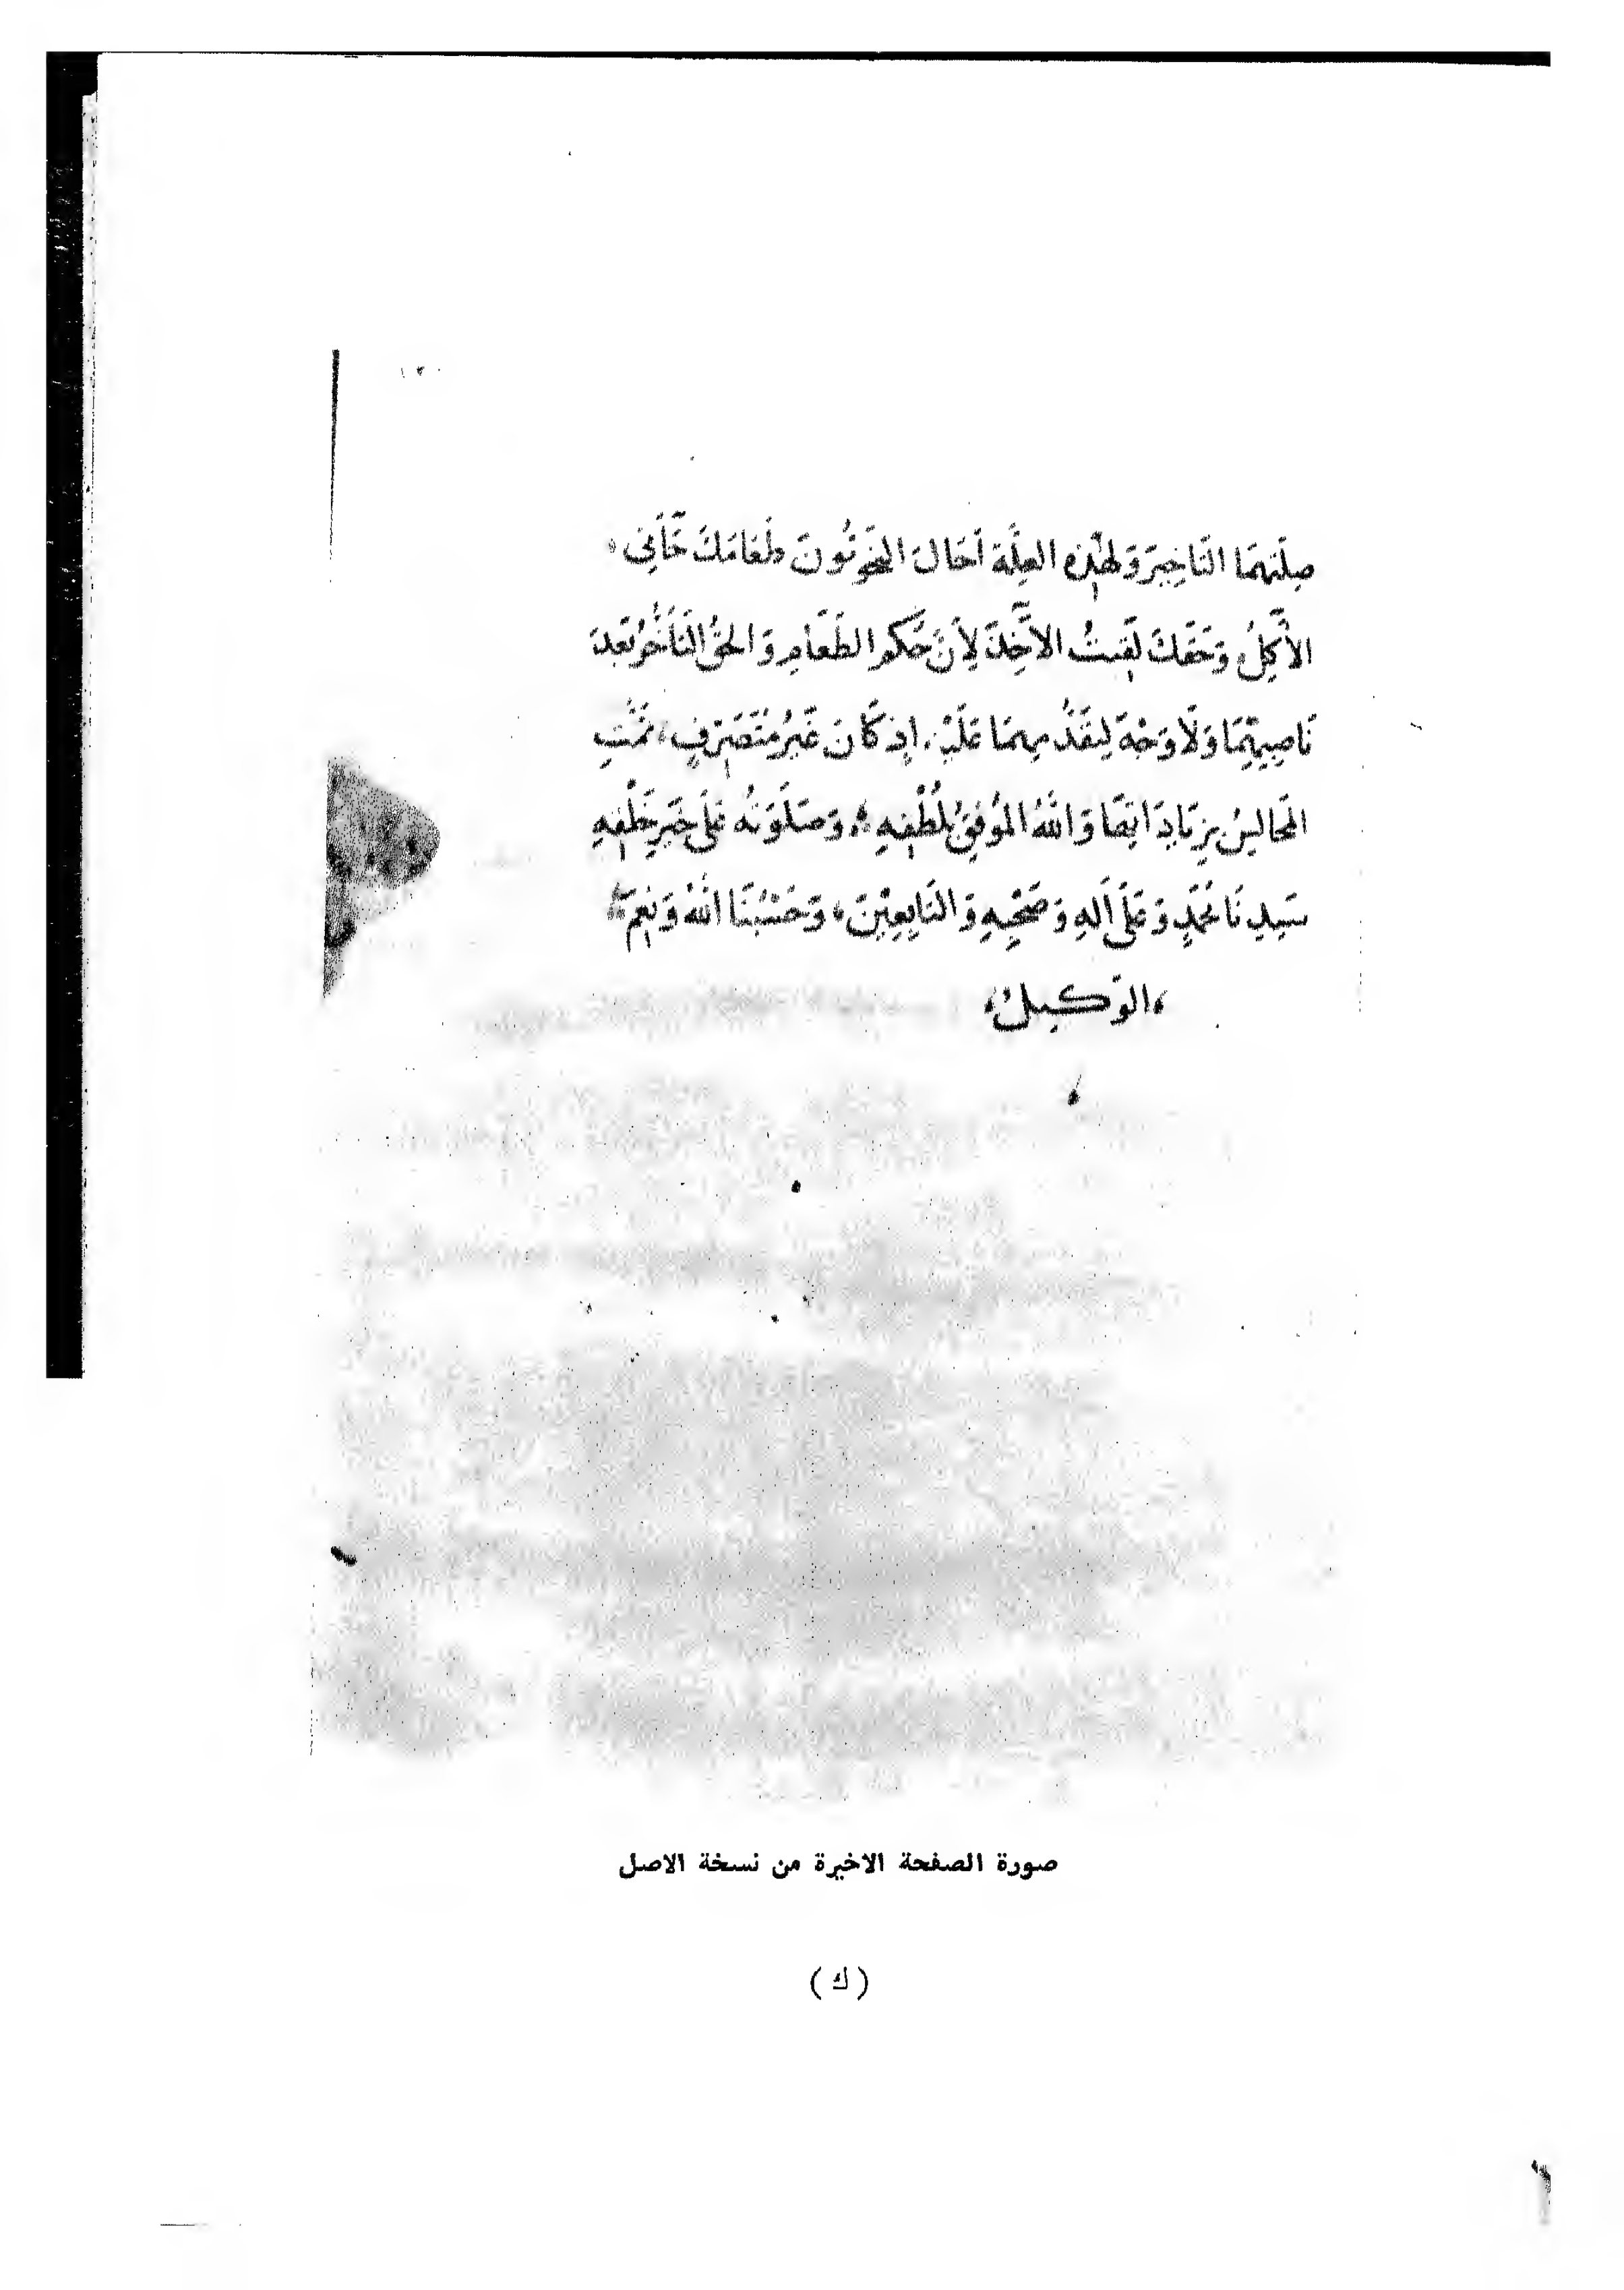 ١٣٠
صِلَتِهِمَا التَّاخِيرَ وَلِهٰذِهِ العِلَّةِ أَحَالَ النَّحْوِيُّونَ طَعَامَكَ جَآءَنِي
الآكِلُ وَحَقَّكَ لَقِيتُ الآخِذَ لِأَنَّ حُكْمَ الطَّعَامِ وَالحَقِّ التَّأَخُّرُ بَعْدَ
نَاصِبِيهِمَا وَلَا وَجْهَ لِتَقَدُّمِهِمَا عَلَيْهِ إِذ كَانَ غَيْرَ مُتَصَرِّفٍ تَمَّتِ
المَجَالِسُ بِزِيَادَاتِهَا وَاللهُ المُوَفِّقُ بِلُطْفِهِ وَصَلَوَتُهُ عَلَى خَيْرِ خَلْقِهِ
سَيِّدِنَا مُحَمَّدٍ وَعَلَى آلِهِ وَصَحْبِهِ وَالتَّابِعِيْنَ وَحَسْبُنَا اللهُ وَنِعْمَ
الوَكِيلُ
صورة الصفحة الاخيرة من نسخة الاصل
( ك )